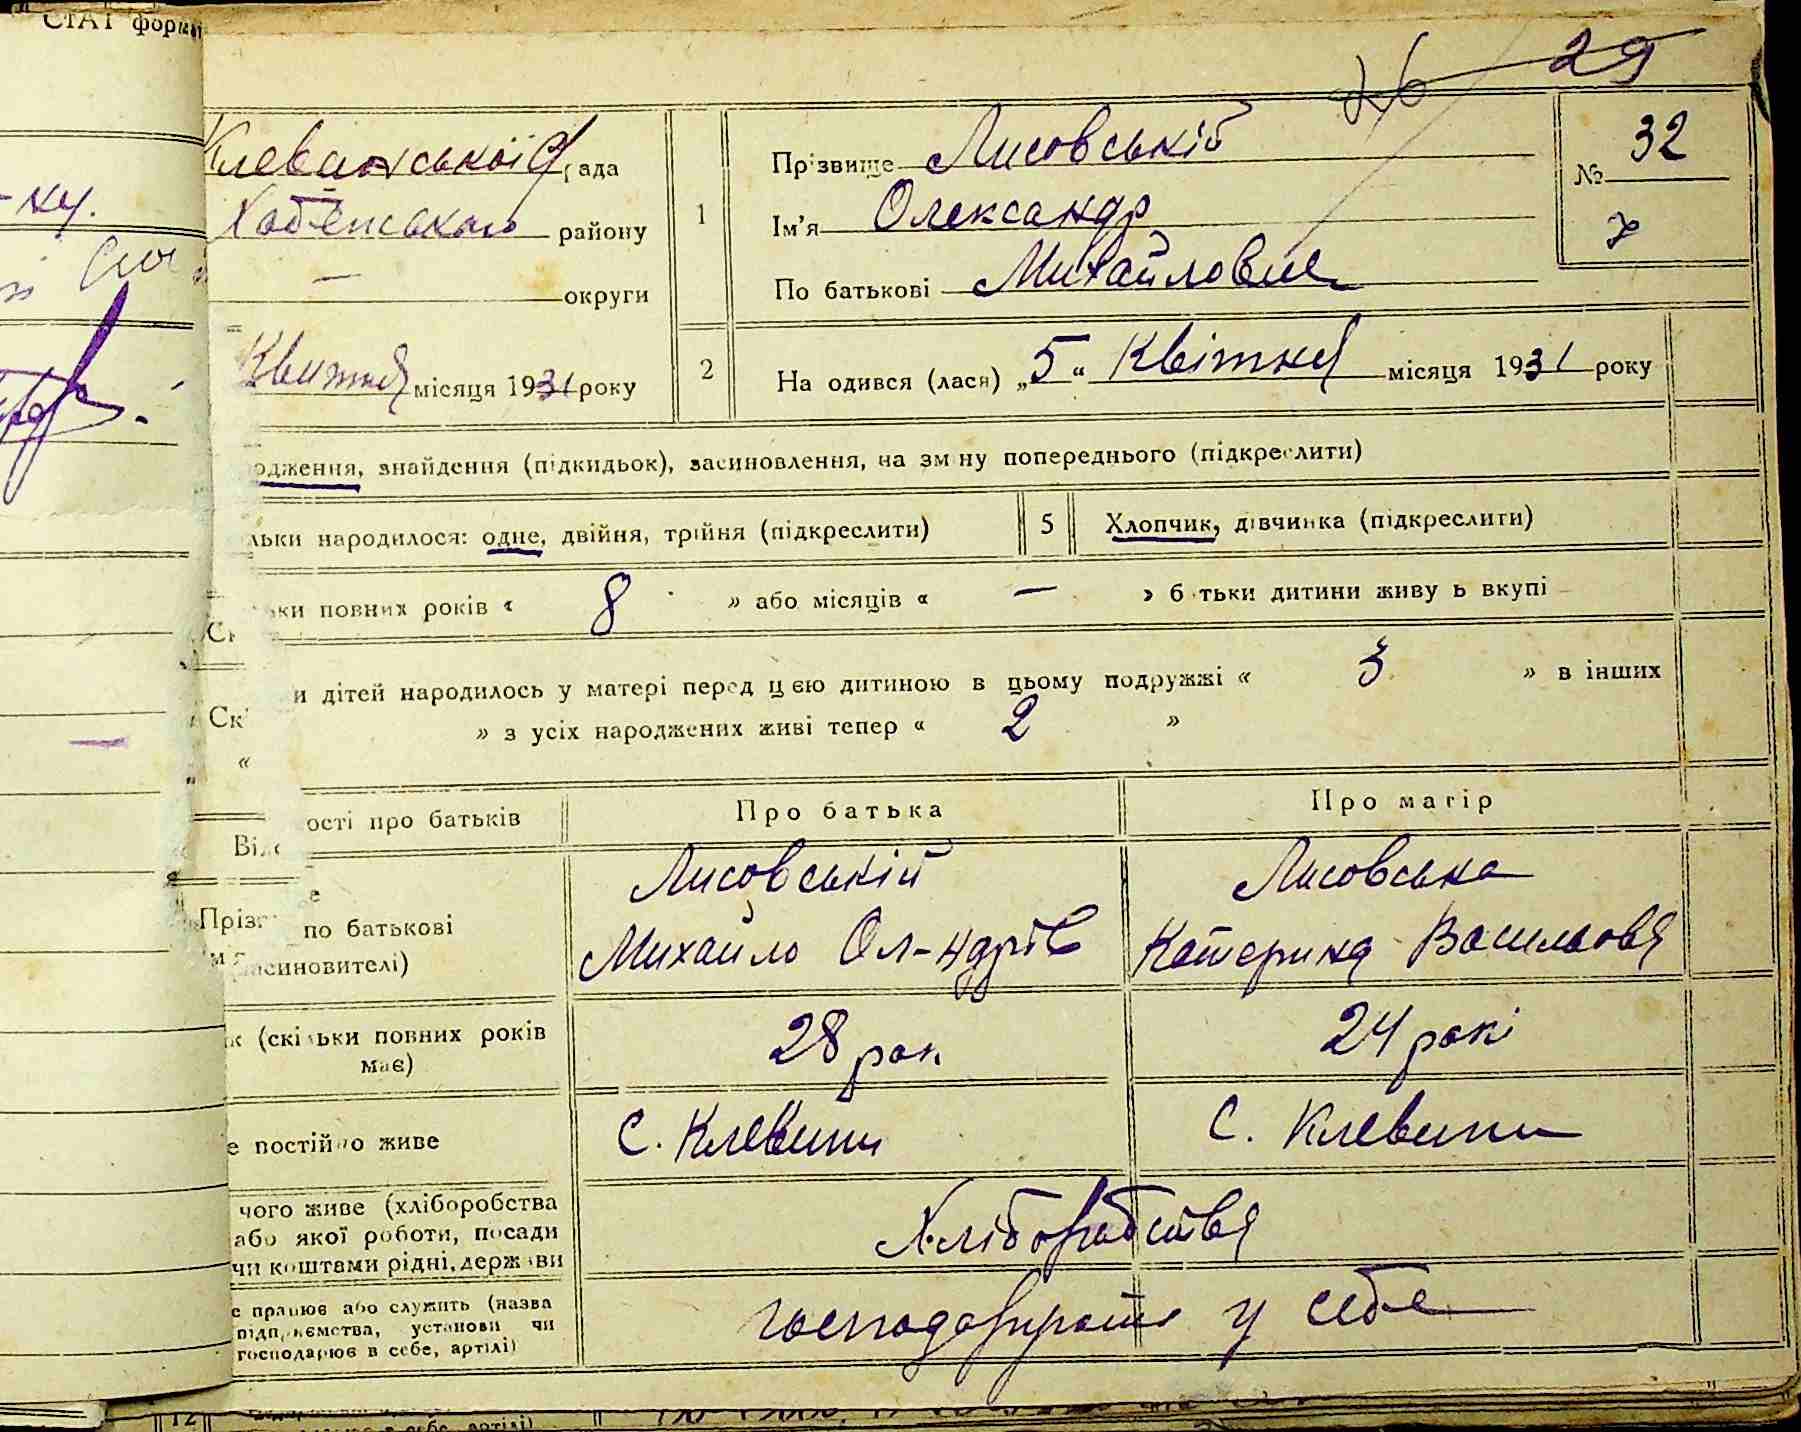 СТАТ форма
29
26
Клеванської с/рада
Хабенського району
— округи
1
Прізвище Лисовській
Ім'я Олександр
По батькові Михайлович
№ 32
7
-ку.
Квитня місяця 1931 року
2
На одився (лася) „5“ Квітня місяця 1931 року
одження, знайдення (підкидьок), засиновлення, на зміну попереднього (підкреслити)
льки народилося: одне, двійня, трійня (підкреслити)
5
Хлопчик, дівчинка (підкреслити)
ьки повних років « 8 » або місяців « — » б тьки дитини живу ь вкупі
Ск
и дітей народилось у матері перед цією дитиною в цьому подружжі « 3 » в інших
Ск
« » з усіх народжених живі тепер « 2 »
Від ості про батьків
Про батька
Про матір
Прізв е
по батькові
(засиновителі)
Лисовській
Михайло Ол-ндрів
Лисовська
Катерина Васильовня
ік (скільки повних років
має)
28 рок
24 рокі
е постійно живе
с. Клевини
с. Клевини
чого живе (хліборобства
або якої роботи, посади
чи коштами рідні, держави
Хліборобствя
е працює або служить (назва
підприємства, установи чи
господарює в себе, артілі)
господарюють у себе
12
в себе, артілі)